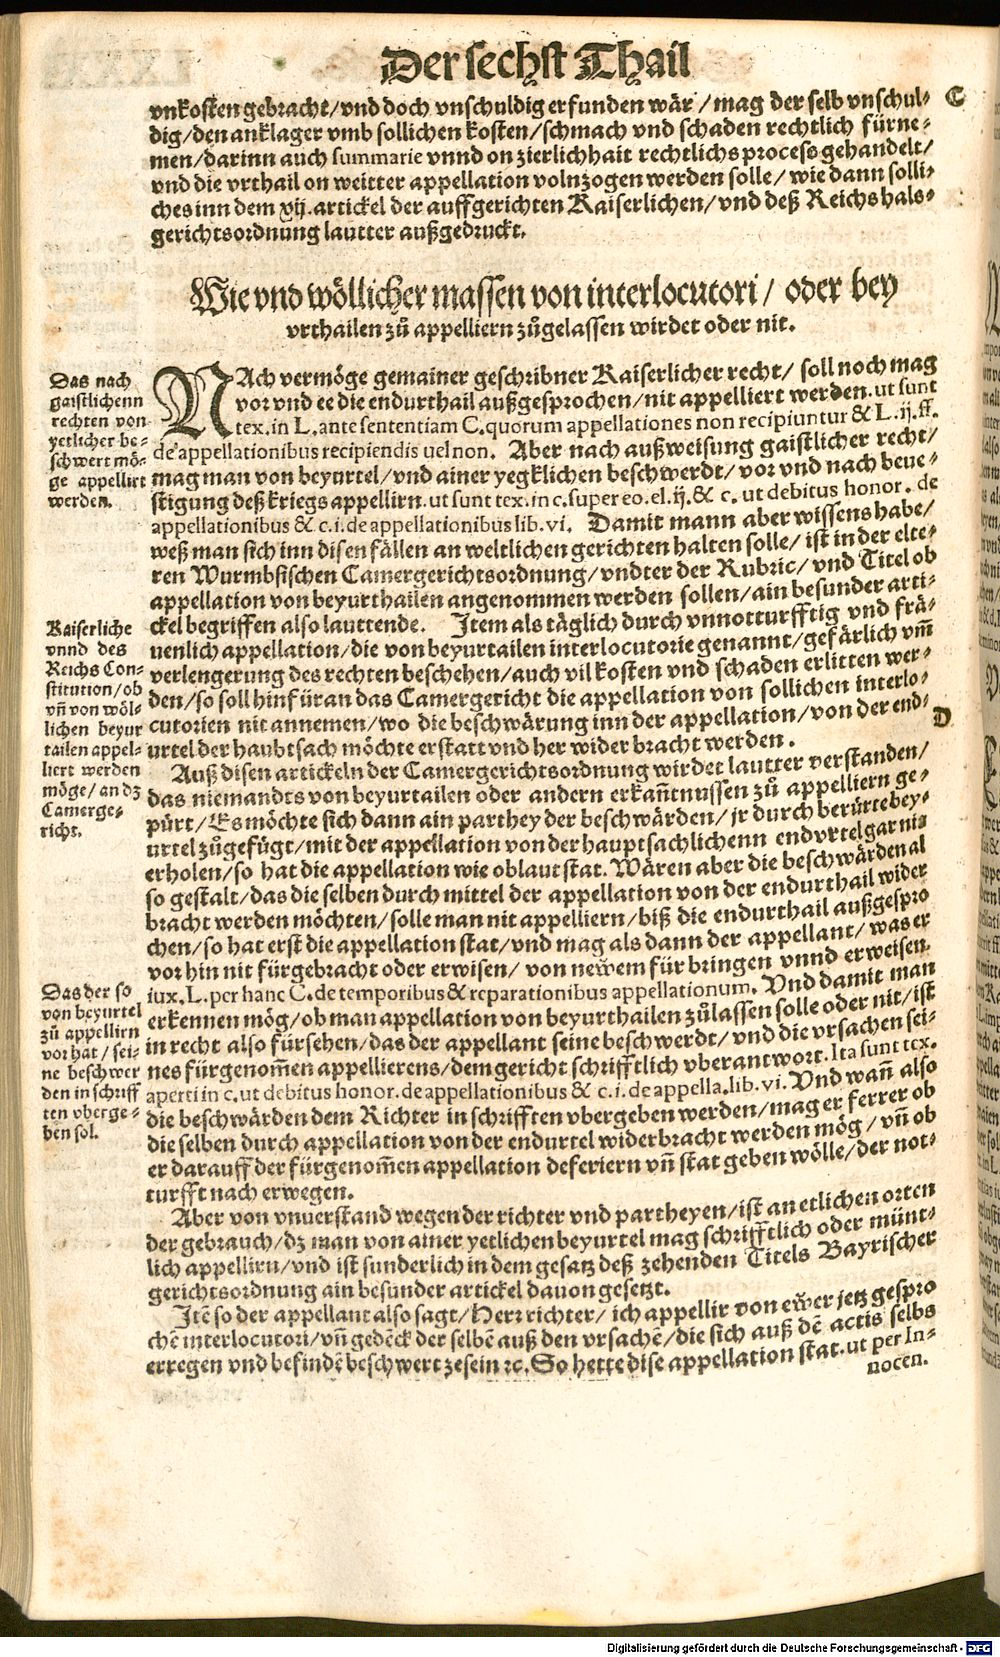 Der sechst Thail
vnkosten gebracht/vnd doch vnschuldig erfunden wär/mag der selb vnschul-
C
dig/den anklager vmb sollichen kosten/schmach vnd schaden rechtlich fürne-
men/darinn auch summarie vnnd on zierlichhait rechtlichs process gehandelt/
vnd die vrthail on weitter appellation volnzogen werden solle/ wie dann solli-
ches inn dem xij. artickel der auffgerichten Kaiserlichen/vnd deß Reichs hals-
gerichtsordnung lautter außgedruckt.
Wie vnd wöllicher massen von interlocutori/ oder bey
vrthailen zů appelliern zůgelassen wirdet oder nit.
Das nach
gaistlichenn
rechten von
yetlicher be-
schwert mö-
ge appellirt
werden.
NAch vermöge gemainer geschribner Kaiserlicher recht/ soll noch mag
vor vnd ee die endurthail außgesprochen/nit appelliert werden. ut sunt
tex. in L. ante sententiam C. quorum appellationes non recipiuntur & L. ij. ff.
de appellationibus recipiendis uel non. Aber nach außweisung gaistlicher recht/
mag man von beyurtel/vnd ainer yegklichen beschwerdt/vor vnd nach beue-
stigung deß kriegs appellirn. ut sunt tex. in c. super eo. el. ij. & c. ut debitus honor. de
appellationibus & c. i. de appellationibus lib. vi. Damit mann aber wissens habe/
weß man sich inn disen fällen an weltlichen gerichten halten solle/ ist in der elte-
ren Wurmbsischen Camergerichtsordnung/vndter der Rubric/ vnd Titel ob
appellation von beyurthailen angenommen werden sollen/ain besunder arti-
ckel begriffen also lauttende. Item als täglich durch vnnotturfftig vnd frä-
uenlich appellation/die von beyurtailen interlocutorie genannt/gefärlich vm̃
verlengerung des rechten beschehen/auch vil kosten vnd schaden erlitten wer-
den/so soll hinfüran das Camergericht die appellation von sollichen interlo-
cutorien nit annemen/wo die beschwärung inn der appellation/von der end-
urtel der haubtsach möchte erstatt vnd her wider bracht werden.
Kaiserliche
vnnd des
Reichs Con-
stitution/ob
vñ von wöl-
lichen beyur
tailen appel-
liert werden
möge/an dz
Camerge-
richt.
D
Auß disen artickeln der Camergerichtsordnung wirdet lautter verstanden/
das niemandts von beyurtailen oder andern erkañtnussen zů appelliern ge-
pürt/Es möchte sich dann ain parthey der beschwärden/jr durch berürte bey-
urtel zůgefügt/mit der appellation von der hauptsachlichenn endvrtel gar nia
erholen/so hat die appellation wie oblaut stat. Wären aber die beschwärden al
so gestalt/das die selben durch mittel der appellation von der endurthail wider
bracht werden möchten/solle man nit appelliern/biß die endurthail außgespro
chen/so hat erst die appellation stat/vnd mag als dann der appellant/was er
vor hin nit fürgebracht oder erwisen/von newem für bringen vnnd erweisen.
iux. L. per hanc C. de temporibus & reparationibus appellationum. Vnd damit man
erkennen mög/ob man appellation von beyurthailen zůlassen solle oder nit/ist
in recht also fürsehen/das der appellant seine beschwerdt/vnd die vrsachen sei-
nes fürgenom̃en appellierens/dem gericht schrifftlich vberantwort. Ita sunt tex.
aperti in c. ut debitus honor. de appellationibus & c. i. de appella. lib. vi. Vnd wañ also
die beschwärden dem Richter in schrifften vbergeben werden/mag er ferrer ob
die selben durch appellation von der endurtel widerbracht werden mög/ vñ ob
er darauff der fürgenom̃en appellation deferiern vñ stat geben wölle/der not-
turfft nach erwegen.
Das der so
von beyurtel
zů appellirn
vorhat/sei-
ne beschwer
den in schriff
ten vberge-
ben sol.
Aber von vnuerstand wegen der richter vnd partheyen/ist an etlichen orten
der gebrauch/dz man von ainer yetlichen beyurtel mag schrifftlich oder münt-
lich appellirn/vnd ist sunderlich in dem gesatz deß zehenden Titels Bayrischer
gerichtsordnung ain besunder artickel dauon gesetzt.
Itē so der appellant also sagt/Herr richter/ich appellir von ewer jetz gespro
chē interlocutori/vñ gedēck der selbē auß den vrsachē/die sich auß dē actis selbs
erregen vnd befindē beschwert ze sein ꝛc. So hette dise appellation stat. ut per In-
nocen.
Digitalisierung gefördert durch die Deutsche Forschungsgemeinschaft - DFG